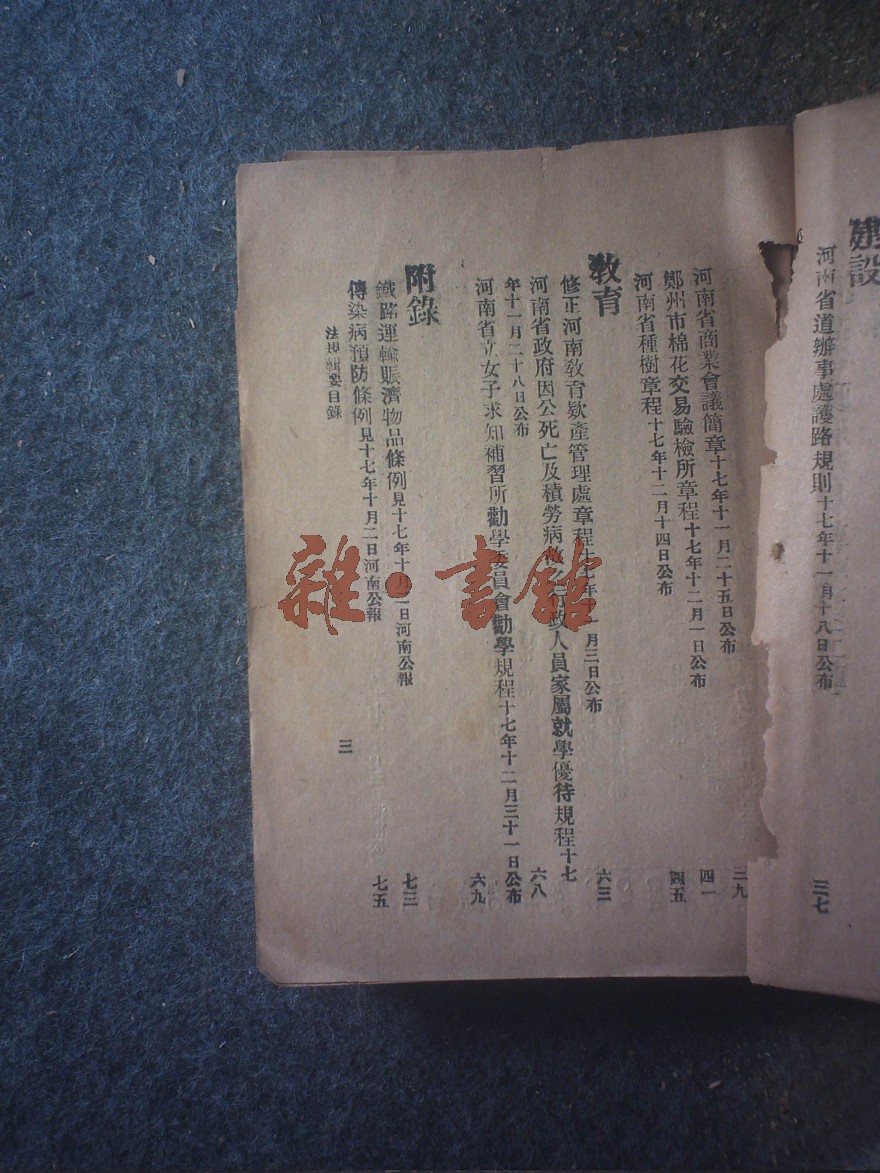 建設
河南省道辦事處護路規則十七年十一月十八日公布 三七
河南省商業會議簡章十七年十一月二十五日公布 三九
鄭州市棉花交易驗檢所章程十七年十二月一日公布 四一
河南省種樹章程十七年十二月十四日公布 四五
教育
修正河南教育欵產管理處章程十七年十一月三日公布 六三
河南省政府因公死亡及積勞病故之行政人員家屬就學優待規程十七
年十一月二十八日公布 六八
河南省立女子求知補習所勸學委員會勸學規程十七年十二月三十一日公布 六九
附錄
鐵路運輸賑濟物品條例見十七年十月二日河南公報 七三
傳染病預防條例見十七年十月二日河南公報 七五
法規輯要目錄
三
雜·書館